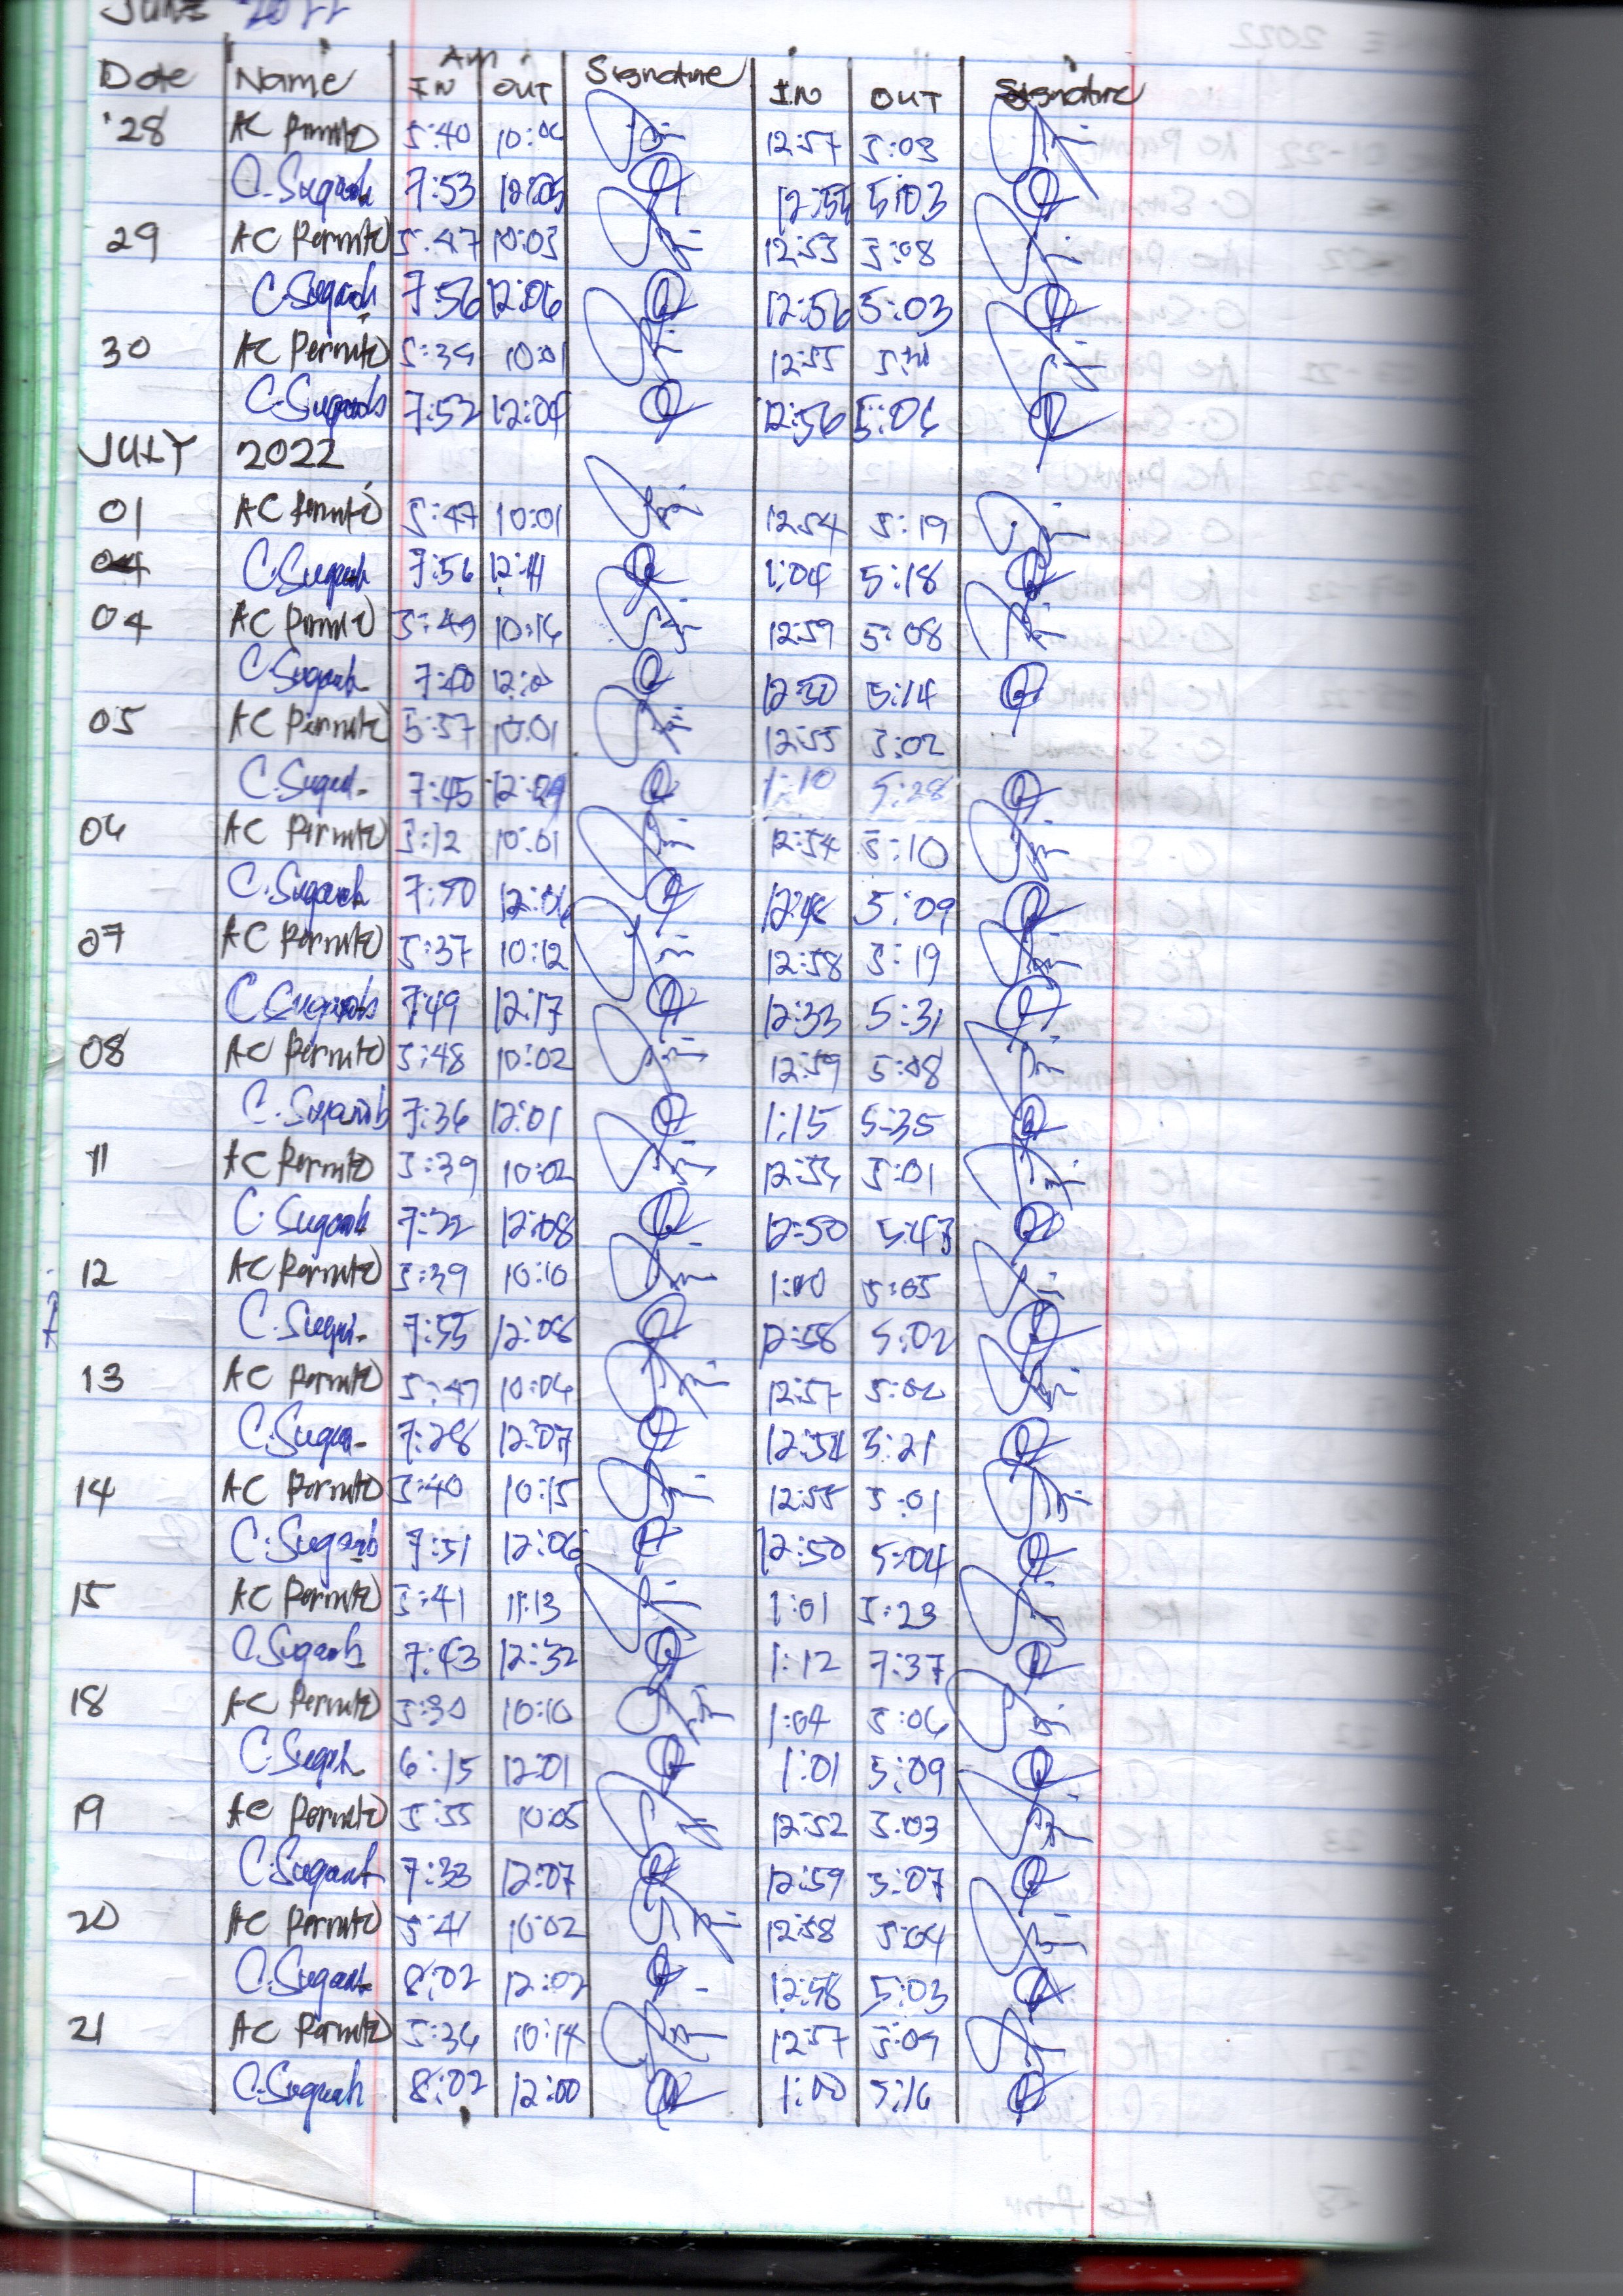 JUNE 2022
Am
Date Name IN OUT Signature IN OUT Signature
28 AC Permito 5:40 10:06 12:57 5:03
C. Sugarob 7:53 12:05 12:55 5:03
29 AC Permito 5:47 10:03 12:53 5:08
C. Sugarob 7:56 12:06 12:56 5:03
30 AC Permito 5:39 10:01 12:55
C. Sugarob 7:52 12:04 12:56 5:06
JULY 2022
01 AC Permito 5:47 10:01 12:54 5:19
C. Sugarob 7:56 12:11 1:04 5:18
04 AC Permito 5:49 10:16 12:59 5:08
C. Sugarob 7:40 12:50 5:14
05 AC Permito 5:57 10:01 12:55 5:02
C. Sugarob 7:45 12:09 1:10 5:28
06 AC Permito 5:12 10:01 12:54 5:10
C. Sugarob 7:50 12:06 12:48 5:09
07 AC Permito 5:37 10:12 12:58 5:19
C. Sugarob 7:49 12:17 12:33 5:31
08 AC Permito 5:48 10:02 12:59 5:08
C. Sugarob 7:36 12:01 1:15 5:35
11 AC Permito 5:39 10:02 12:54 5:01
C. Sugarob 7:22 12:08 12:50 5:47
12 AC Permito 5:39 10:10 1:00 5:05
C. Sugarob 7:55 12:08 12:58 5:02
13 AC Permito 5:47 10:06 12:57 5:02
C. Sugarob 7:28 12:07 12:51 5:21
14 AC Permito 5:40 10:15 12:55 5:01
C. Sugarob 7:51 12:06 12:50 5:04
15 AC Permito 5:41 11:13 1:01 5:23
C. Sugarob 7:43 12:32 1:12 7:37
18 AC Permito 5:30 10:10 1:04 5:06
C. Sugarob 6:15 12:01 1:01 5:09
19 AC Permito 5:55 10:05 12:52 5:03
C. Sugarob 7:33 12:07 12:59 5:07
20 AC Permito 5:41 10:02 12:58 5:04
C. Sugarob 8:02 12:02 12:58 5:03
21 AC Permito 5:36 10:14 12:57 5:09
C. Sugarob 8:02 12:00 1:00 5:16